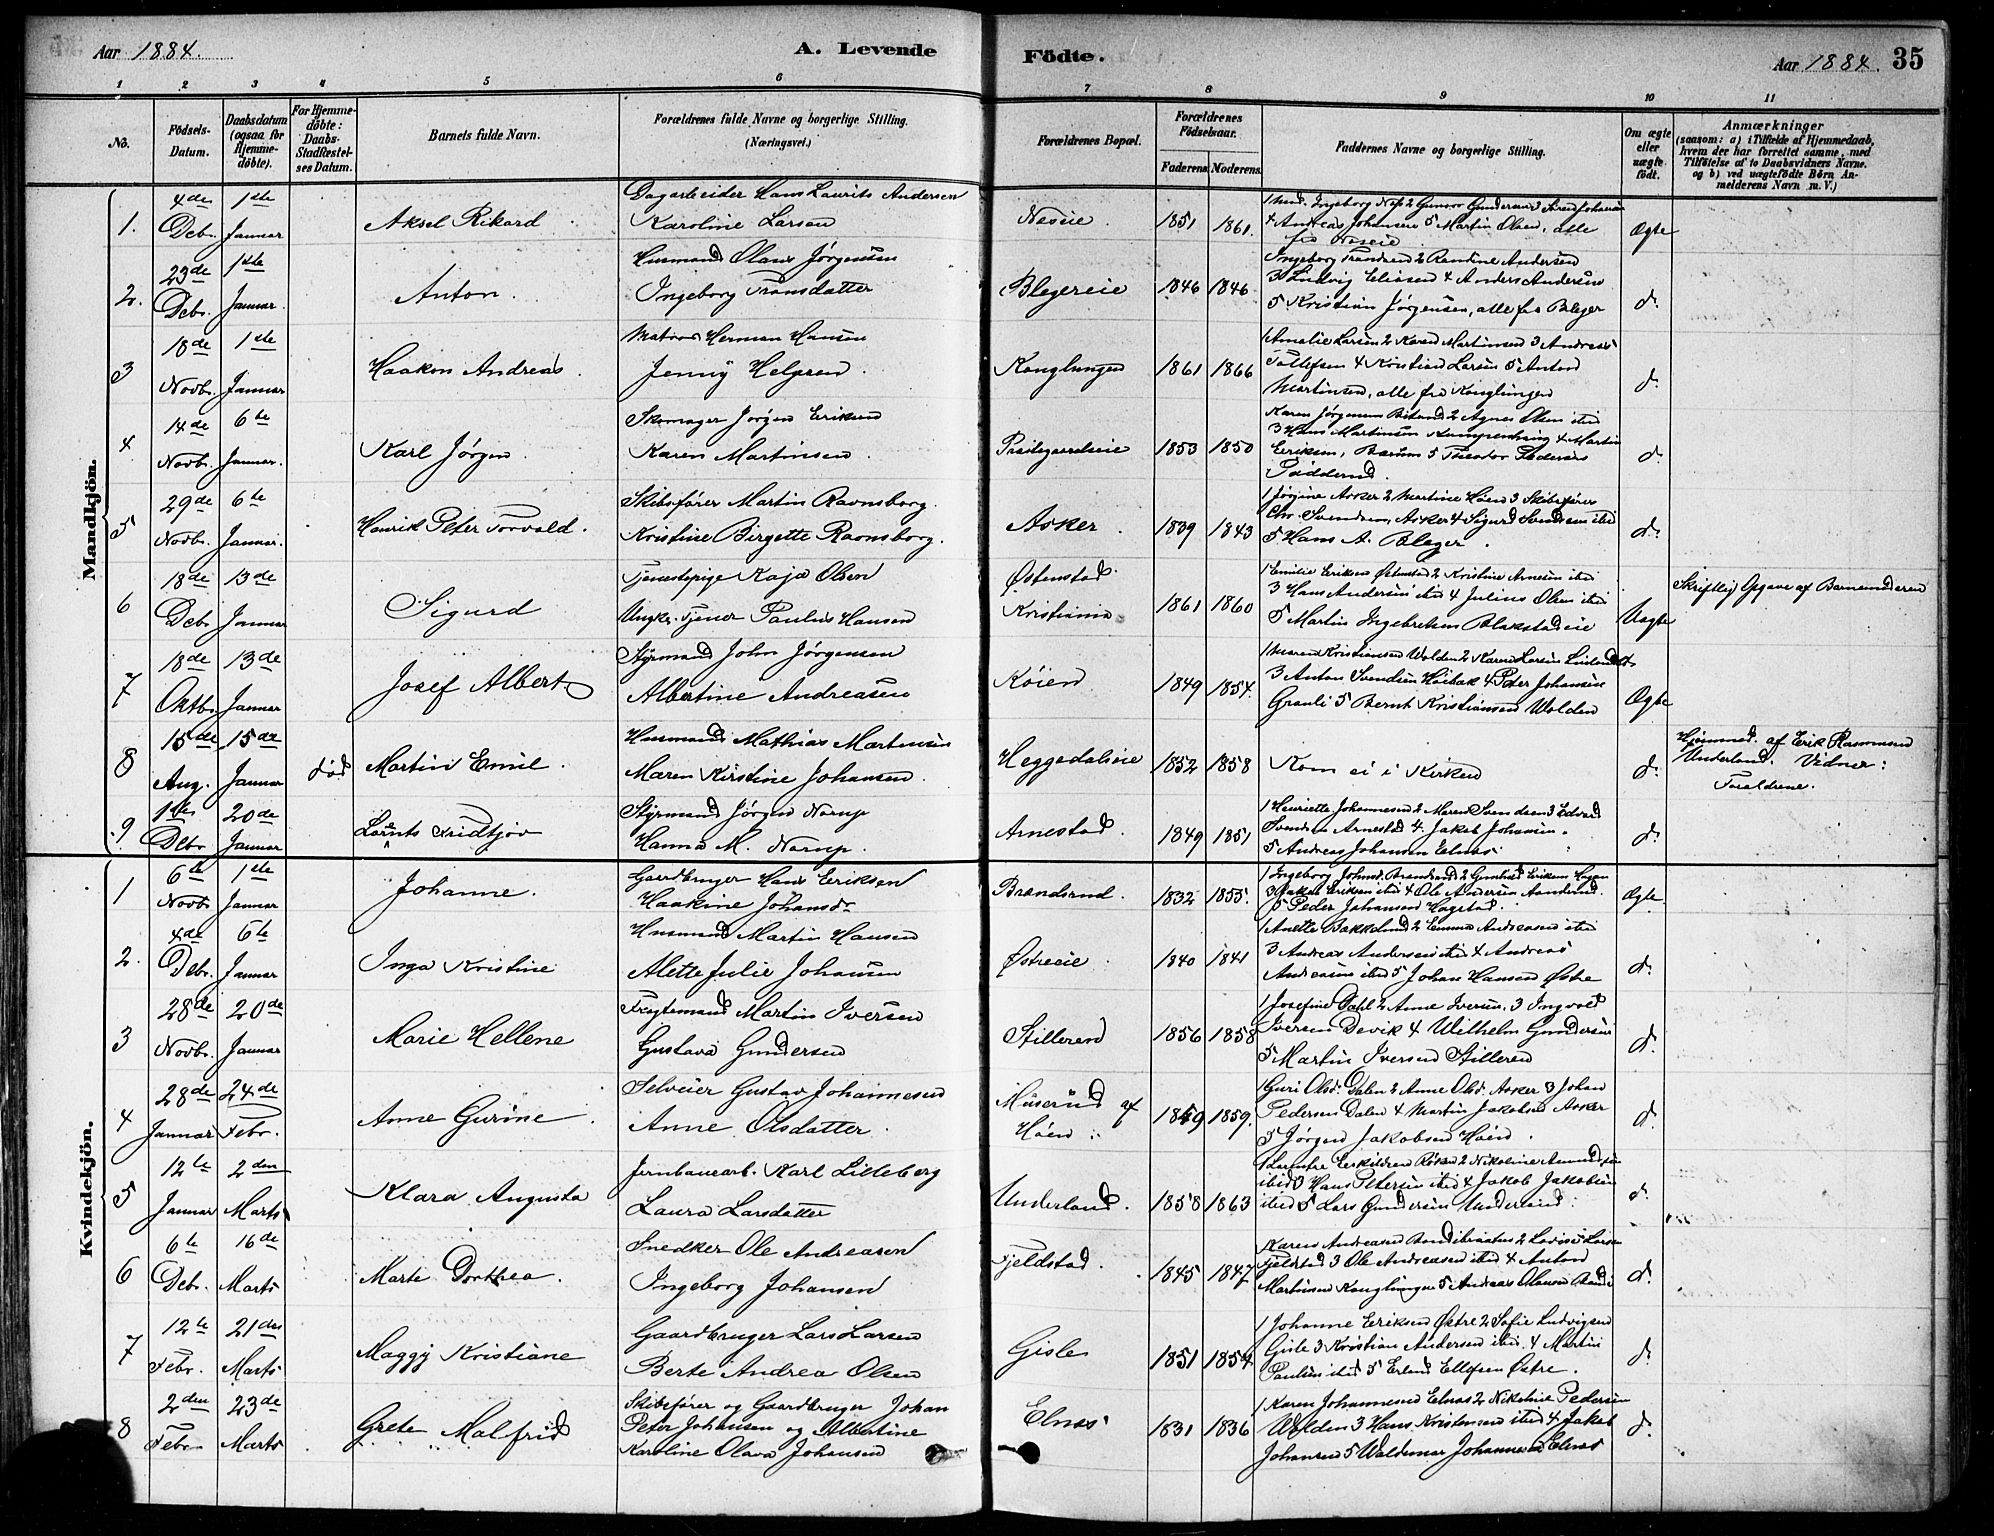 Aar 1884.
A. Levende
Födte.
Aar 1884. 35
1 2 3 4 5 6 7 8 9 10 11
No.
Födsels-Datum.
Daabsdatum (ogsaa for Hjemme-döbte).
For Hjemme-döbte: Daabs-Stadfestel-ses Datum.
Barnets fulde Navn.
Forældrenes fulde Navne og borgerlige Stilling. (Næringsvei.)
Forældrenes Bopæl.
Forældrenes Födselsaar.
Faderens Moderens
Faddernes Navne og borgerlige Stilling.
Om ægte eller uægte födt.
Anmærkninger
(saasom: a) i Tilfælde af Hjemmedaab, hvem der har forrettet samme, med Tilföielse af to Daabsvidners Navne. og b) ved uægtefödte Börn An-melderens Navn m. V.)
Mandkjön.
1. 4de Debr. 1ste Januar
Aksel Rikard
Dagarbeider Hans Laurits Andersen
Karoline Larsen
Neseie 1851 1861.
4 Andreas Johansen 5 Martin Olsen, alle
fra Neseie
Ægte
2. 23de Debr. 1ste Januar.
Anton.
Husmand Olaus Jørgensen
Ingeborg Transdatter
Blegereie 1846 1846
3 Ludvig Eliasen 4 Anders Andersen
5 Kristian Jørgensen, alle fra Bleger
d.
3 18de Novbr. 1ste Januar
Haakon Andreas.
Matros Herman Hansen
Jenny Helgesen.
Konglungen 1861 1866
1 Amalie Larsen 2 Karen Martinsen 3 Andreas
Tollefsen 4 Kristian Larsen 5 Anton
Martinsen, alle fra Konglungen
d.
4 14de Novbr. 6te Januar.
Karl Jørgen.
Skomager Jørgen Eriksen
Karen Martinsen.
1853 1850
d.
5 29de Novbr. 6te Januar.
Henrik Peter Torvald.
Skibsfører Martin Ravnsborg.
Kristine Birgette Ravnsborg.
Asker 1839 1843
Chr. Svendsen, Asker 4 Sigurd Svendsen ibid
5 Hans A. Bleger.
d.
6 18de Debr. 13de Januar
Sigurd
Tjenestepige Kaja Olsen
Ungkr. Tjener Paulus Hansen
Østenstad
Kristiania 1861 1860
1 Emilie Eriksen Østenstad 2 Kristine Arnesen ibid
3 Hans Andersen ibid 4 Julius Olsen ibid
5 Martin Ingebretsen Blakstadeie
Uægte
Skriftlig Opgave af Barnemoderen
7 18de Oktbr. 13de Januar
Josef Albert
Styrmand John Jørgensen
Albertine Andreasen
Køien 1849 1854.
3 Anton Svendsen Høibak 4 Peter Johansen
Grauli 5 Bernt Kristiansen Wolden
Ægte
8 15de Aug. 15de Januar død
Martin Emil.
Husmand Mathias Martinsen
Maren Kirstine Johansen.
Heggedalseie 1852 1858
Kom ei i Kirken
d.
Hjemmed. af Erik Rasmussen
Underland. Vidner:
Forældrene.
9 1ste Debr. 20de Januar
Styrmand Jørgen Narup
Hanna M. Narup.
Arnestad. 1849 1851
1 Henriette Johannesen 2 Maren Svendsen 3 Edvard
Svendsen Arnestad 4. Jakob Johansen
5 Andreas Johansen Elnæs
d.
Kvindekjön.
1 6te Novbr. 1ste Januar
Johanne.
Gaardbruger Hans Eriksen
Haakine Johansdr
1832 1855.
5 Peder Johansen Hogstad.
Ægte
2. 4de Debr. 6te Januar
Inga Kristine
Husmand Martin Hansen
Alette Julie Johansen
Østreeie 1840 1841
1 Anette Bakkelund 2 Emma Andreasen ibid
3 Andreas Andersen ibid 4 Andreas
Andreasen ibid 5 Johan Hansen Østre
d.
3 28de Novbr. 20de Januar
Marie Hellene
Fragtemand Martin Iversen
Gustava Gundersen
Stilleren 1856 1858
1 Josefine Dahl 2 Anne Iversen. 3 Ingvald
Iversen Devik 4 Wilhelm Gundersen
5 Martin Iversen Stilleren
d.
4 28de Januar 24de Febr.
Anne Gurine
Selveier Gustav Johannesen
Anne Olsdatter.
Muserud af
Høen 1859 1859.
1 Guri Olsd. Dalen 2 Anne Olsd. Asker 3 Johan
Pedersen Dalen 4 Martin Jakobsen Asker
5 Jørgen Jakobsen Høen.
d.
5 12te Januar 2den Marts
Klara Augusta
Jernbanearb. Karl Lilleberg
Laura Larsdatter
Underland. 1858 1863
ibid 3 Hans Petersen ibid 4 Jakob Jakobsen
ibid 5 Lars Gundersen Underland
d.
6 6te Debr. 16de Marts
Marte Dorthea.
Snedker Ole Andreasen
Ingeborg Johansen
Fjeldstad. 1845 1847
Fjeldstad 3 Ole Andreasen ibid 4 Anton
Martinsen Konglungen 5 Andreas Olausen
d.
7 12te Febr. 21de Marts
Maggy Kristiane
Gaardbruger Lars Larsen
Berte Andrea Olsen
Gisle 1851 1854
1 Johanne Eriksen Østre 2 Sofie Ludvigsen
Gisle 3 Kristian Andersen ibid. 4 Martin
Paulsen ibid 5 Erland Ellefsen Østre.
d.
8 2den Febr. 23de Marts
Grete Malfrid
Skibsfører og Gaardbruger Johan
Peter Johansen og Albertine
Karoline Olava Johansen
Elnæs 1831 1836
1 Karen Johannesen Elnæs 2 Nikoline Pedersen
Wolden 3 Hans Kristensen ibid 4 Jakob
Johansen 5 Waldemar Johannesen Elnæs
d.